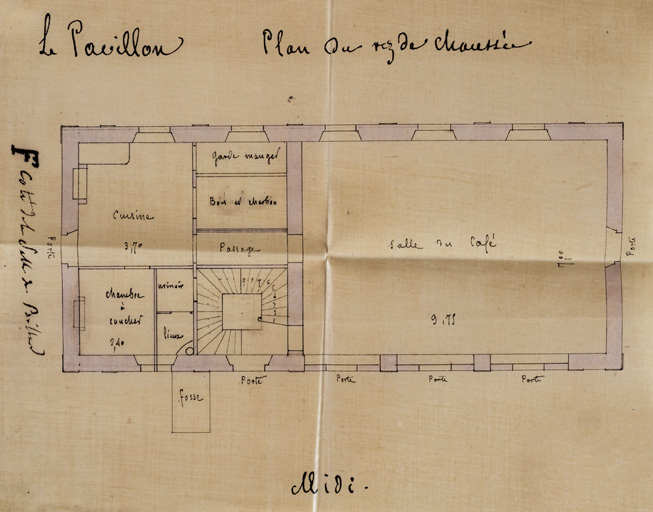 Le Pavillon
Plan du rez de chaussée
F Coté de la Salle de Billard
Porte
Garde manger
Bois et charbon
Cuisine
3,70
Passage
Salle du Café
7,00
Porte
chambre
à
coucher
2,40
urinoir
lieux
9,75
Porte
Porte
Porte
Porte
fosse
Midi.